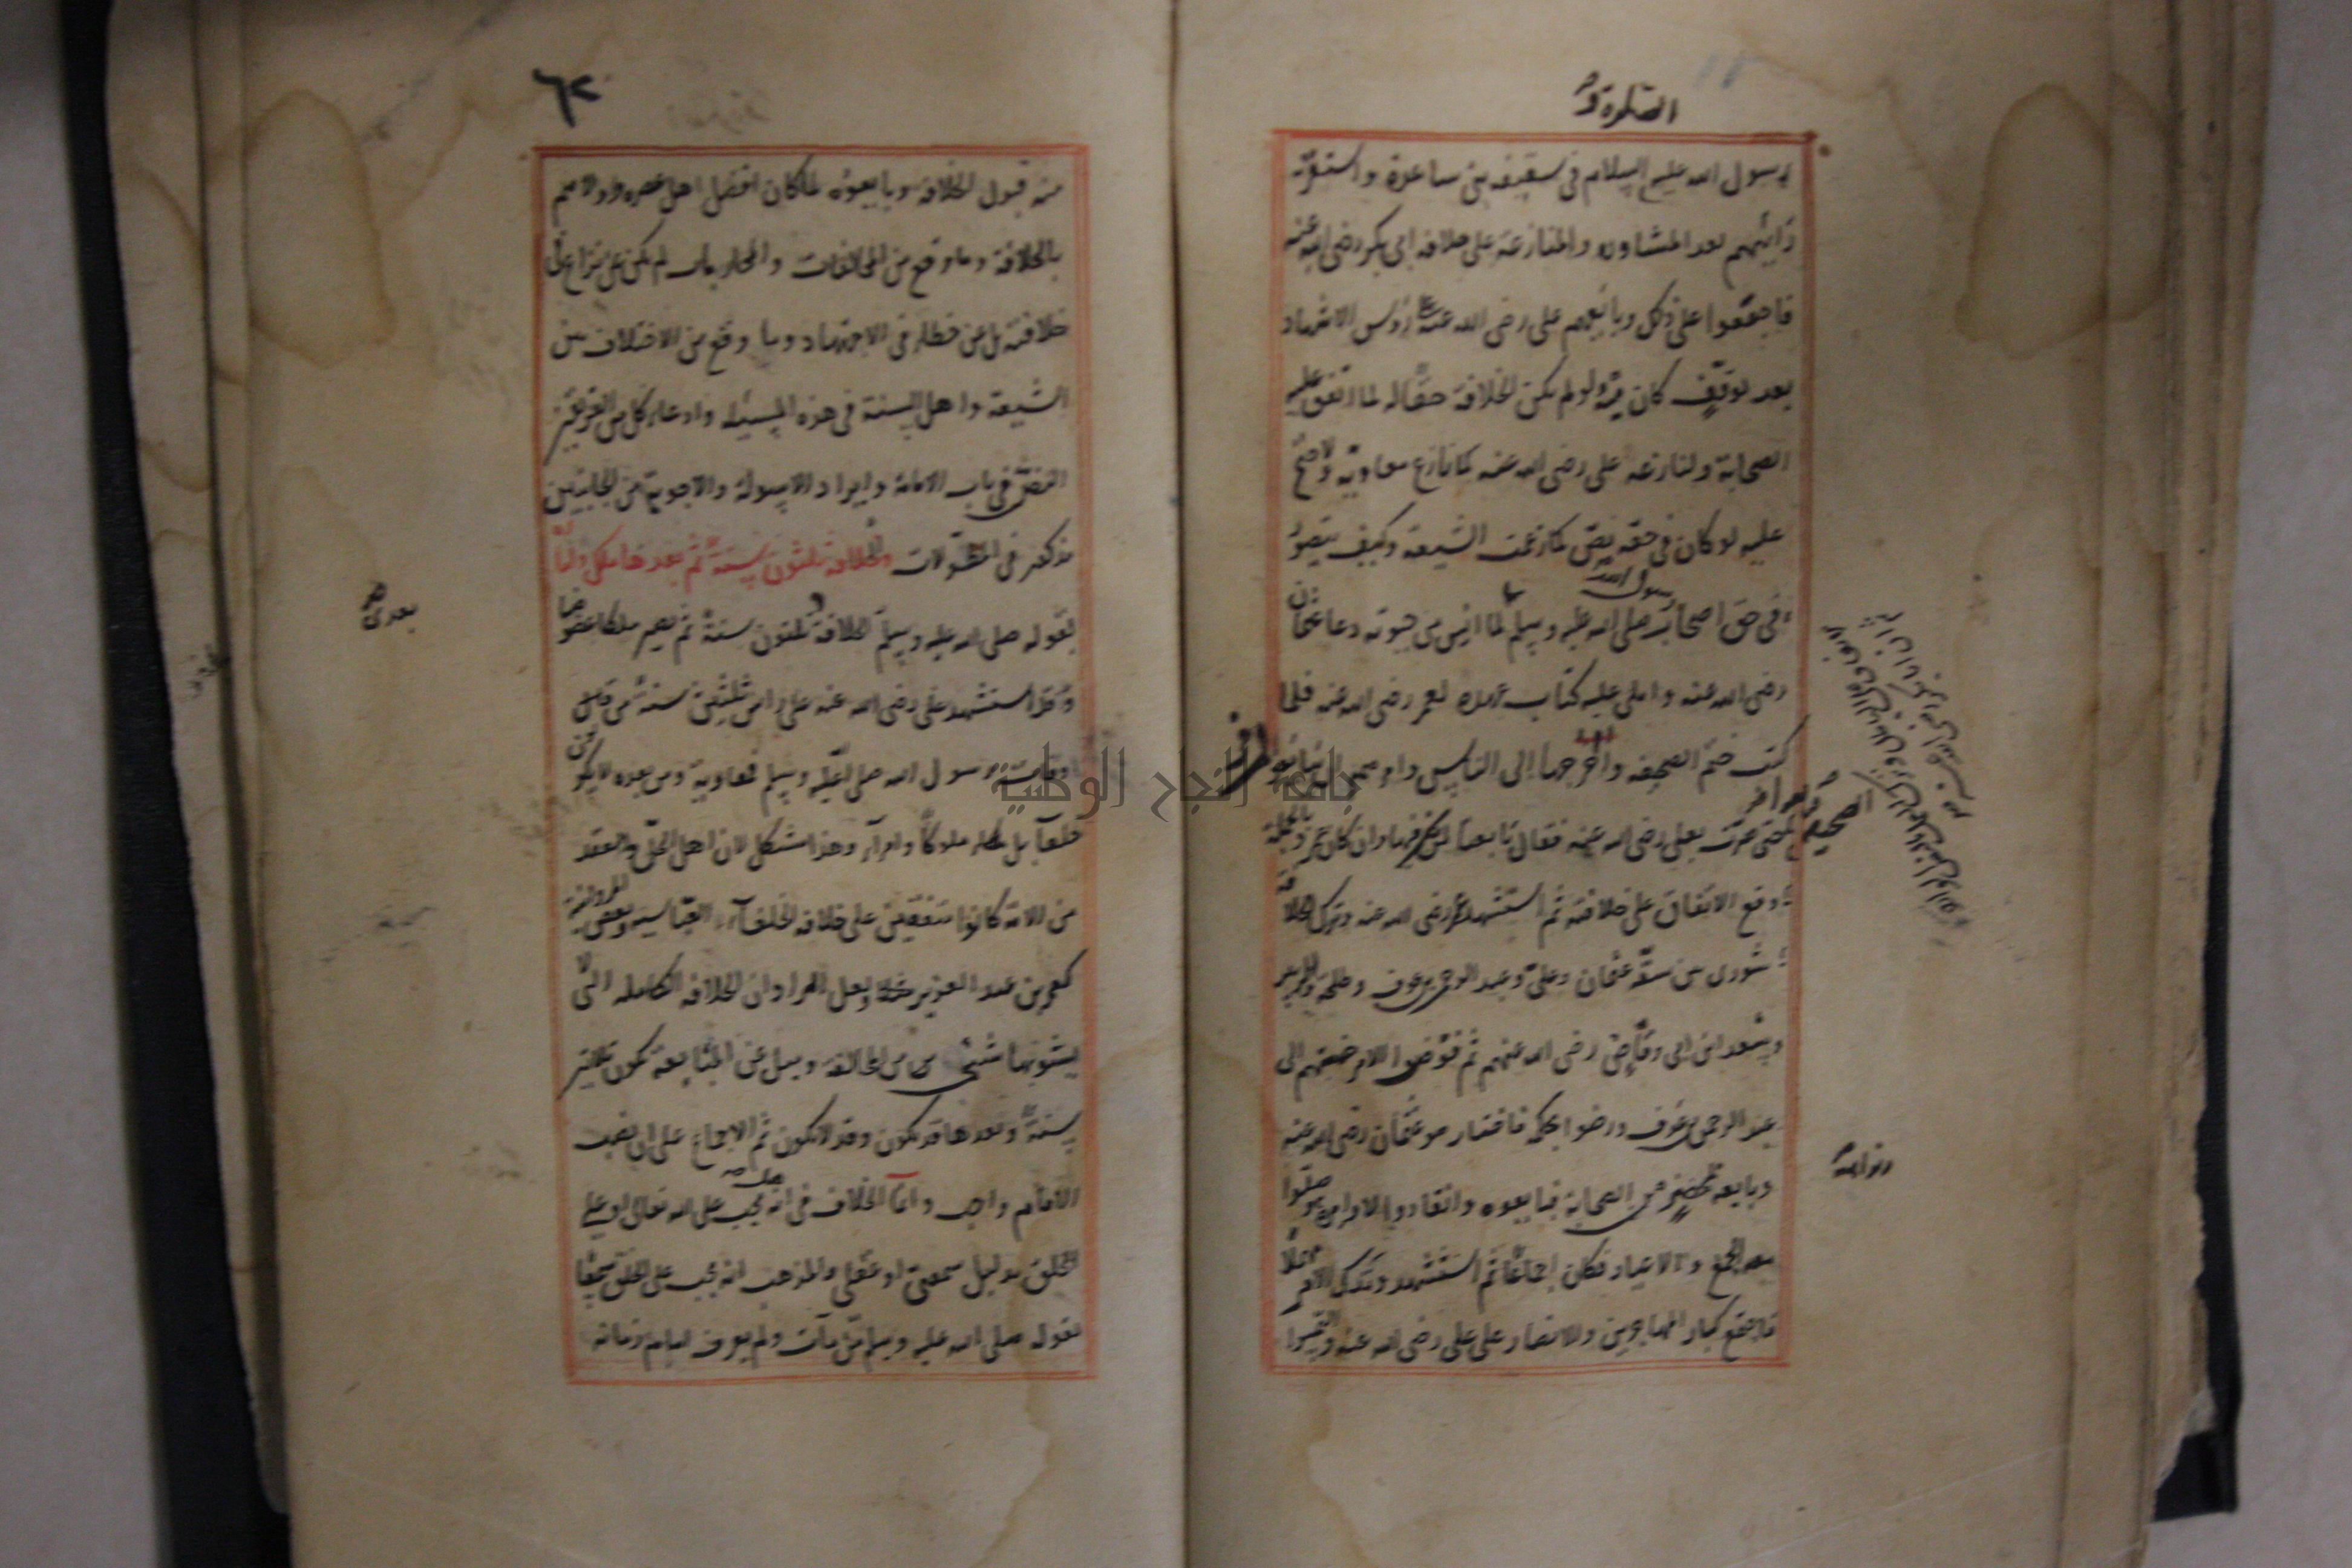 الصلوة و
رسول الله عليه السلام في سقيفة بني ساعدة واستقر
رأيهم بعد المشاورة والمنازعة على خلافة ابي بكر رضى الله عنه
فاجمعوا على ذلك وبايعهم على رضى الله عنه ع رؤس الاشهاد
بعد توقف كان منه ولو لم يكن الخلافة حقا له لما اتفق عليه
الصحابة ولنازعه على رضى الله عنه كما نازع معاوية ولاحتج
عليهم لو كان في حقه نص كما زعمت الشيعة وكيف يتصور
في حق اصحاب رسول الله صلى الله عليه وسلم لما ايس من حيوته دعا عثمان
رضى الله عنه واملى عليه كتاب عهده لعمر رضى الله عنه فلما
كتب ختم الصحيفة واخرجها الى الناس وامرهم ان يبايعوا
الصحيفة
حتى مرت بعلى رضى الله عنه فقال بايعنا لمن فيها وان كان عمر وبالجملة
وقع الاتفاق على خلافته ثم استشهد عمر رضى الله عنه وترك الخلافة
شورى بين ستة عثمان وعلى وعبد الرحمن بن عوف وطلحة والزبير
وسعد ابن ابى وقاص رضى الله عنهم ثم فوض الامر خمستهم الى
عبد الرحمن بن عوف ورضوا بحكمه فاختار هو عثمان رضى الله عنه
وبايعه بمحضر من الصحابة فبايعوه وانقادوا لاوامره وصلوا
معه الجمع والاعياد فكان اجماعا ثم استشهد وترك الامر مهملا
فاجمع كبار المهاجرين والانصار على على رضى الله عنه والتمسوا
٦٢
منه قبول الخلافة وبايعوه لما كان افضل اهل عصره واولاهم
بالخلافة وما وقع من المخالفات والمحاربات لم يكن عن نزاع في
خلافته بل عن خطاء في الاجتهاد وما وقع من الاختلاف بين
الشيعة واهل السنة في هذه المسئلة وادعاء كل من الفريقين
النص في باب الامامة وايراد الاسولة والاجوبة من الجانبين
مذكور في المطولات والخلافة ثلثون سنة ثم بعدها ملك وامارة
لقوله صلى الله عليه وسلم الخلافة بعدى ثلثون سنة ثم يصير ملكا عضوضا
وقد استشهد على رضى الله عنه على رأس ثلثين سنة من
وفات رسول الله صلى الله عليه وسلم فمعاوية ومن بعده لا يكون
خلفآ بل ملوكا وامرآء وهذا مشكل لان اهل الحل والعقد
من الامة كانوا متفقين على خلافة الخلفآء العباسية وبعض المروانية
كعمر بن عبد العزيز ولعل المراد ان الخلافة الكاملة التى لا
يشوبها شئ من المخالفة وميل عن المتابعة تكون ثلثين
سنة وبعدها قد تكون وقد لا تكون ثم الاجماع على ان نصب
الامام واجب وانما الخلاف في انه هل يجب على الله تعالى او على
الخلق بدليل سمعي او عقلي والمذهب انه يجب على الخلق سمعا
لقوله صلى الله عليه وسلم من مات ولم يعرف امام زمانه
بعدى
جامعة النجاح الوطنية